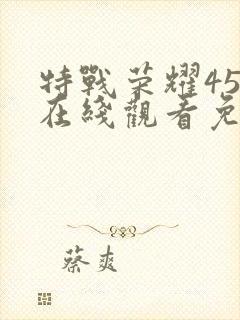 特戰荣耀45
在綫觀看免
蔡爽